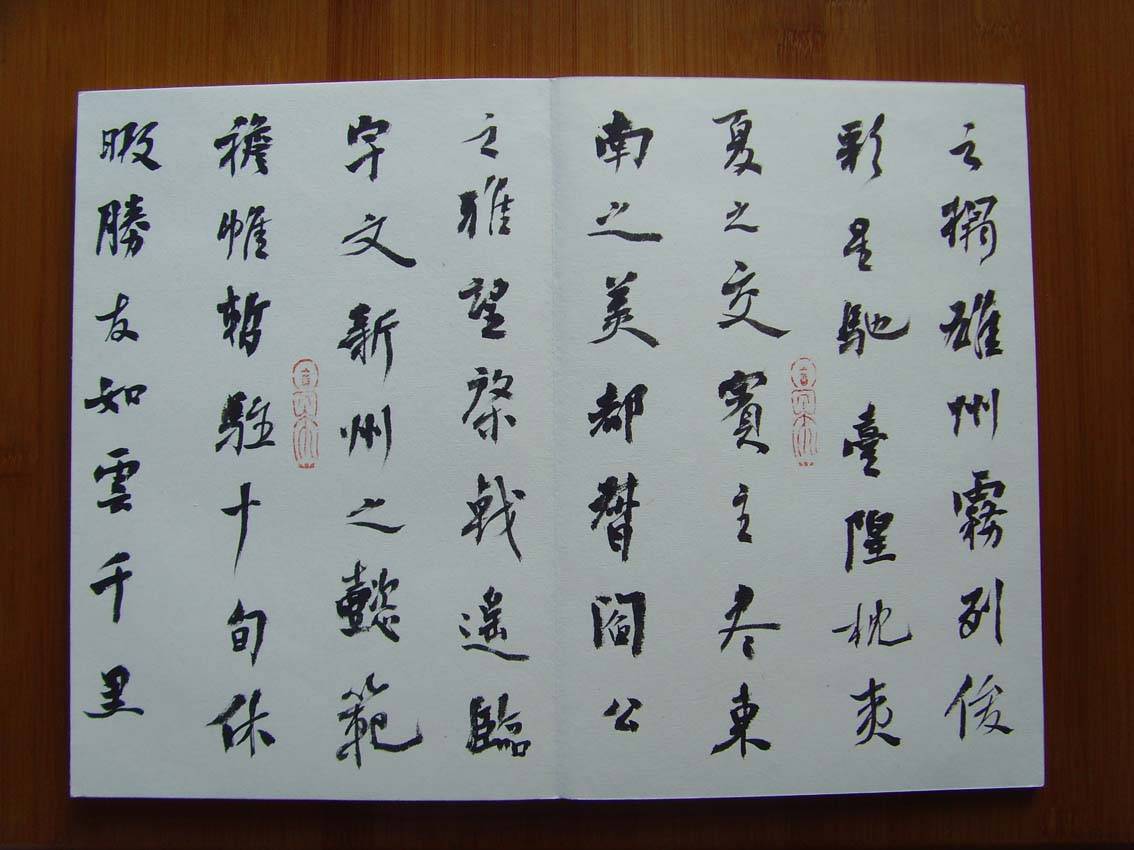 之榻雄州霧列俊
彩星馳臺隍枕夷
夏之交賓主尽東
南之美都督閻公
之雅望棨戟遙臨
宇文新州之懿範
襜帷暫駐十旬休
暇勝友如雲千里